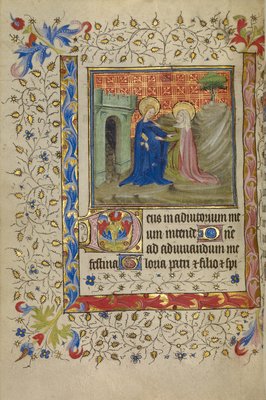 Deus in adiutorium me
um intende Dñe
ad adiuuandum me
festina Gloria patri & filio & spi